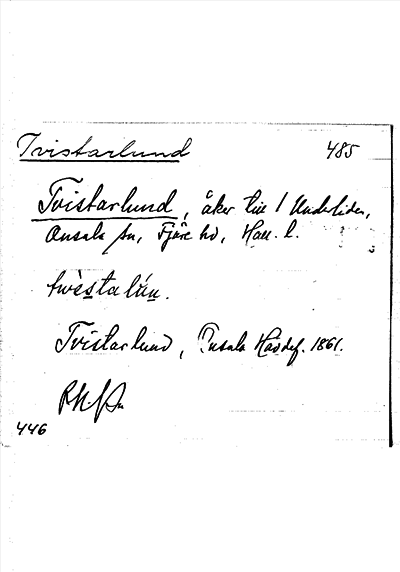 Tvistarlund 485
Tvistarlund, åker till 1 Underliden,
Onsala sn, Fjäre hd, Hall. l.
twèstalún.
Tvistarlund, Onsala Haddef. 1861.
446